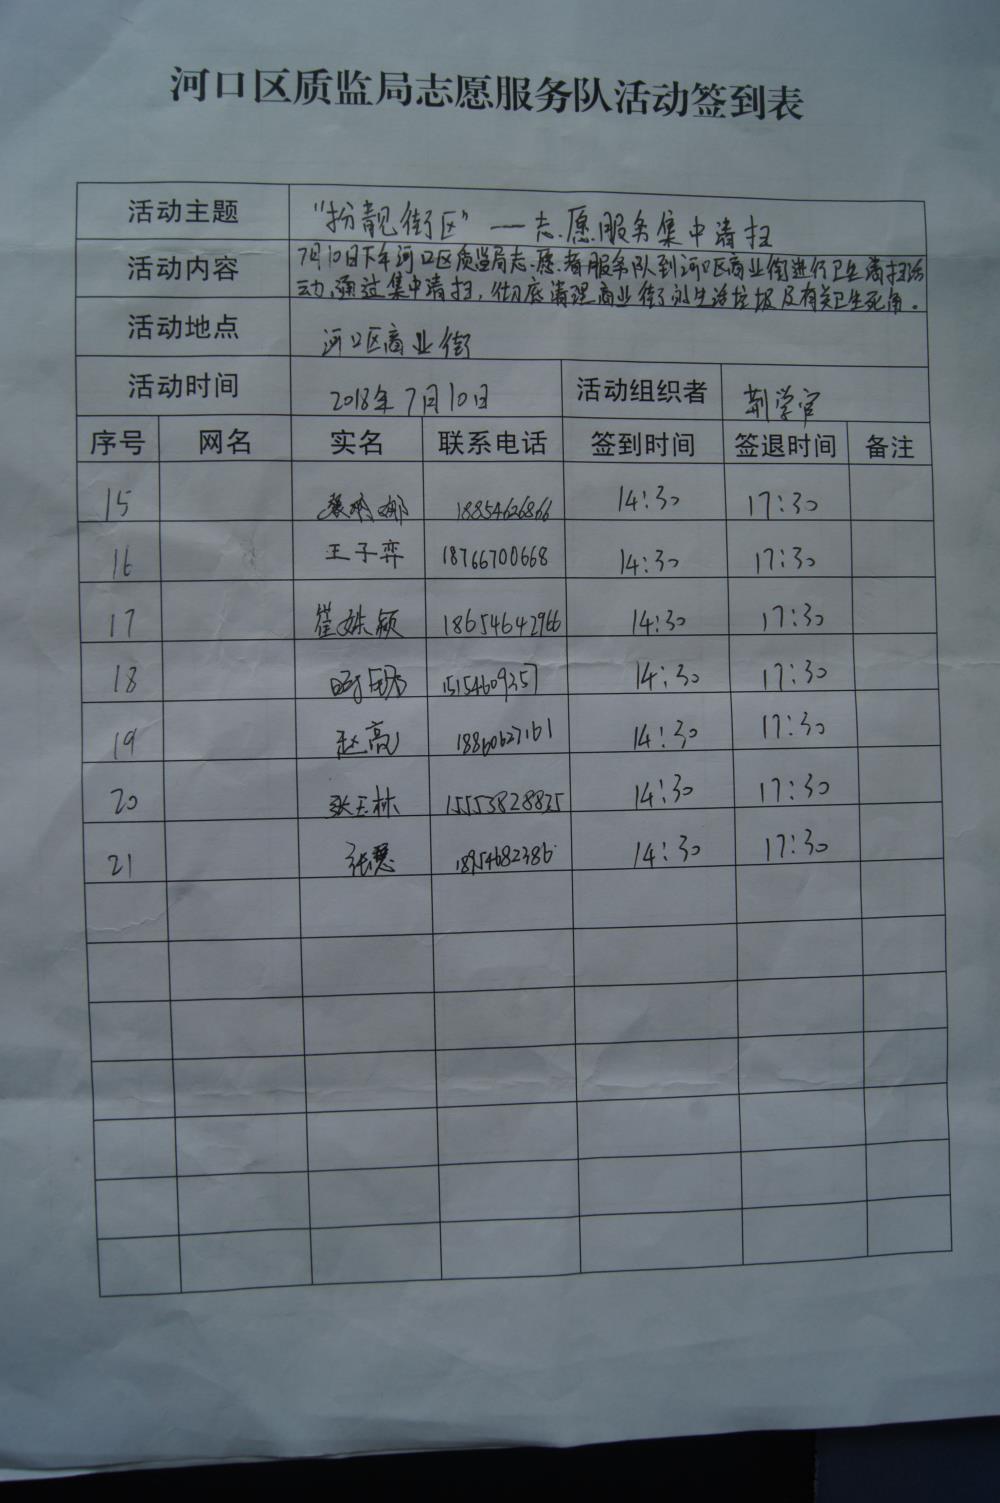 河口区质监局志愿服务队活动签到表
活动主题 “扮靓街区”——志愿服务集中清扫
活动内容 7月10日下午河口区质监局志愿者服务队到河口区商业街进行卫生清扫活
动,通过集中清扫,彻底清理商业街的生活垃圾及有关卫生死角。
活动地点 河口区商业街
活动时间 2018年7月10日 活动组织者 荆学官
序号 网名 实名 联系电话 签到时间 签退时间 备注
15 娜 18854626866 14:30 17:30
16 王子弈 18766700668 14:30 17:30
17 崔姝颖 18654642966 14:30 17:30
18 15154609357 14:30 17:30
19 赵亮 18860627161 14:30 17:30
20 张玉林 15553828835 14:30 17:30
21 张慧 18954682386 14:30 17:30